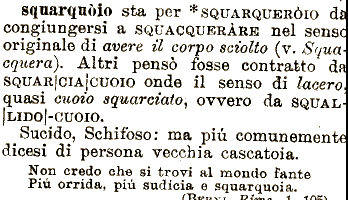 squarquòio sta per *SQUARQUERÒIO da
congiungersi a SQUACQUERÀRE nel senso
originale di avere il corpo sciolto (v. Squa-
cquera). Altri pensò fosse contratto da
SQUAR|CIA|CUOIO onde il senso di lacero,
quasi cuoio squarciato, ovvero da SQUAL-
|LIDO|-CUOIO.
Sucido, Schifoso: ma piú comunemente
dicesi di persona vecchia cascatoia.
Non credo che si trovi al mondo fante
Piú orrida, piú sudicia e squarquoia.
(BERNI, Rime, 1, 105)